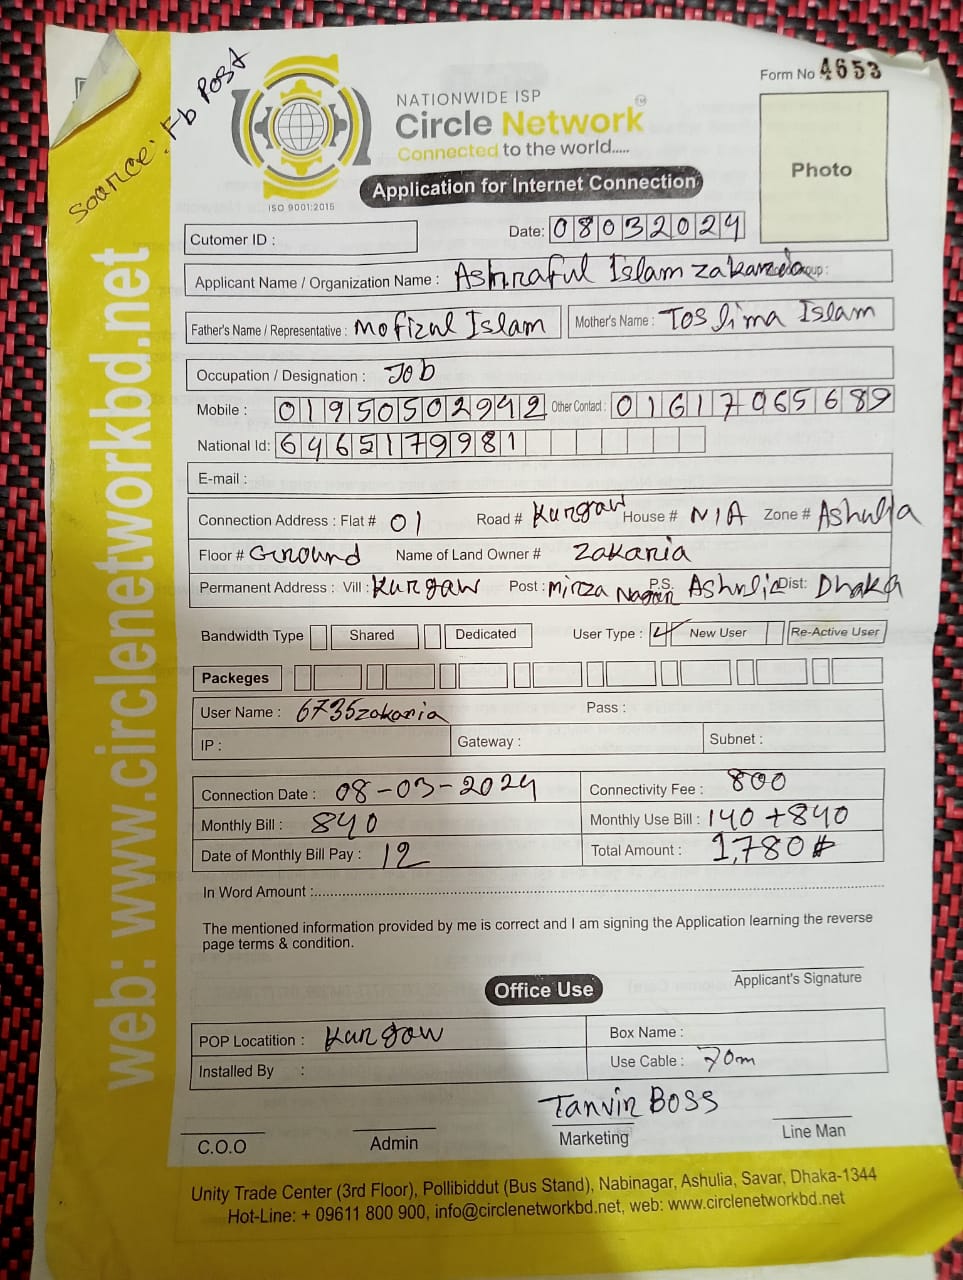 Source: Fb Post
Form No 4653
NATIONWIDE ISP
Circle Network
Connected to the world.....
ISO 9001:2015
Application for Internet Connection
Photo
Cutomer ID :
Date: 08032024
Applicant Name / Organization Name : Ashraful Islam zakaria
Father's Name / Representative : Mofizul Islam Mother's Name : Toslima Islam
Occupation / Designation : Job
Mobile : 01950502942 Other Contact : 01617065689
National Id: 6465179981
E-mail :
Connection Address : Flat # 01 Road # Kurgaw House # N/A Zone # Ashulia
Floor # Ground Name of Land Owner # zakaria
Permanent Address : Vill : Kurgaw Post : Mirza Nagar P.S. Ashulia Dist: Dhaka
Bandwidth Type Shared Dedicated User Type : New User Re-Active User
Packeges
User Name : 6735zakaria Pass :
IP : Gateway : Subnet :
Connection Date : 08-03-2024 Connectivity Fee : 800
Monthly Bill : 840 Monthly Use Bill : 140+840
Date of Monthly Bill Pay : 12 Total Amount : 1,780
In Word Amount :
The mentioned information provided by me is correct and I am signing the Application learning the reverse
page terms & condition.
Applicant's Signature
Office Use
POP Locatition : Kurgaw Box Name :
Installed By : Use Cable : 70m
Tanvir BOSS
C.O.O Admin Marketing Line Man
Unity Trade Center (3rd Floor), Pollibiddut (Bus Stand), Nabinagar, Ashulia, Savar, Dhaka-1344
Hot-Line: + 09611 800 900, info@circlenetworkbd.net, web: www.circlenetworkbd.net
web: www.circlenetworkbd.net